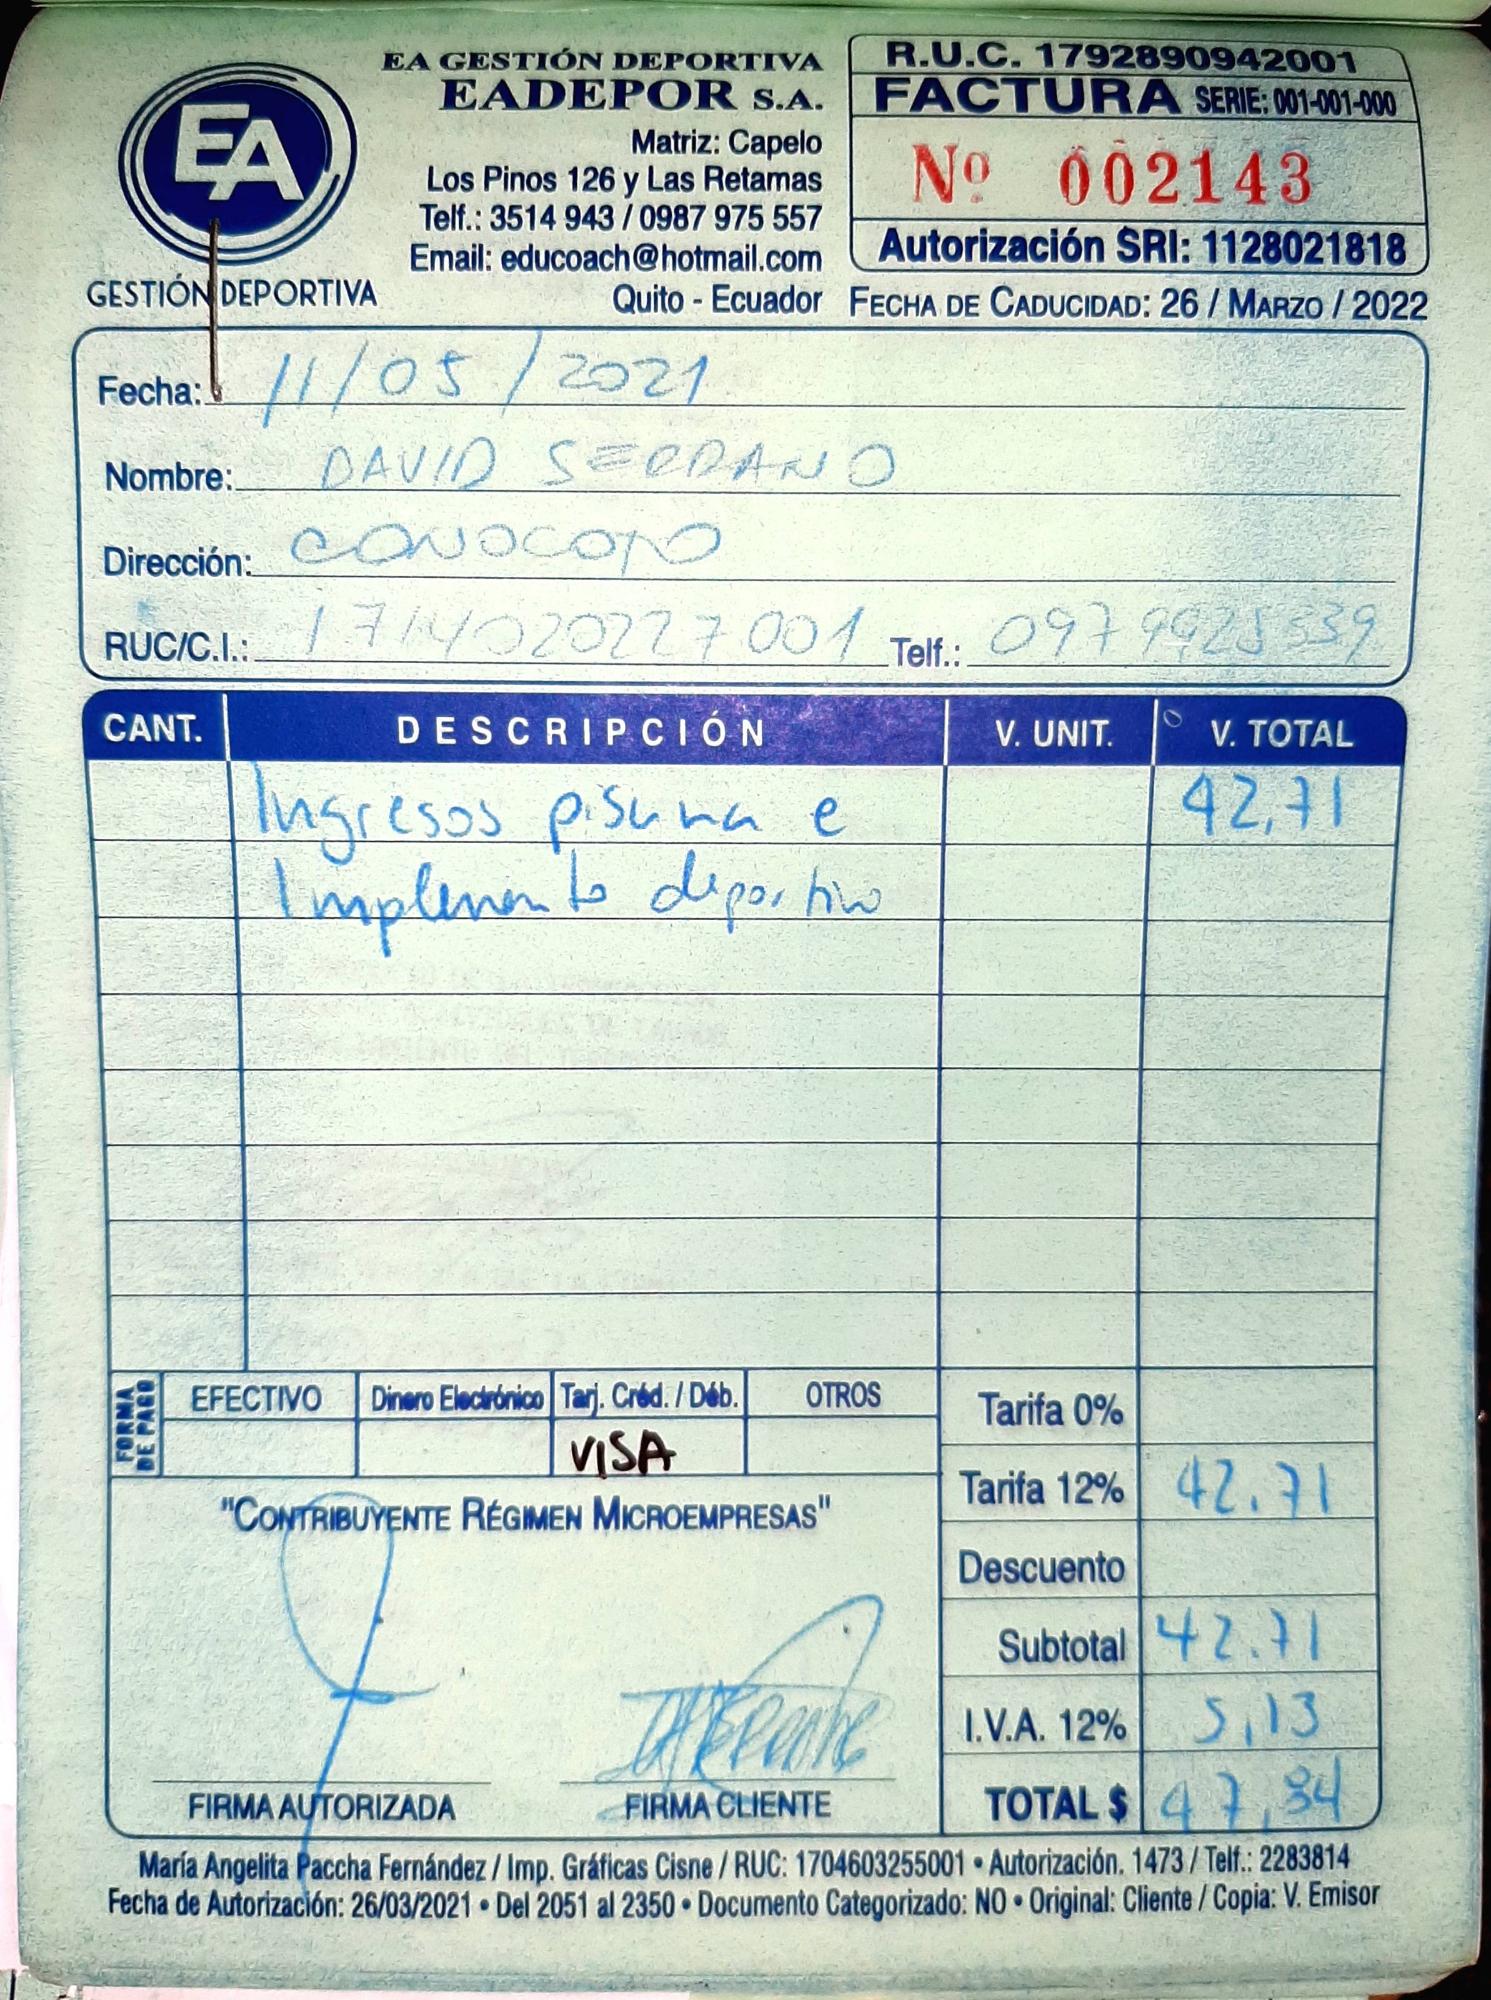 EA
GESTIÓN DEPORTIVA
EA GESTIÓN DEPORTIVA
EADEPOR S.A.
Matriz: Capelo
Los Pinos 126 y Las Retamas
Telf.: 3514 943 / 0987 975 557
Email: educoach@hotmail.com
Quito - Ecuador
R.U.C. 1792890942001
FACTURA SERIE: 001-001-000
Nº 002143
Autorización SRI: 1128021818
FECHA DE CADUCIDAD: 26 / MARZO / 2022
Fecha: 11/05/2021
Nombre: DAVID SERRANO
Dirección: CONOCOTO
RUC/C.I.: 1714020227001 Telf.: 0979925339
CANT. DESCRIPCIÓN V. UNIT. V. TOTAL
Ingresos piscina e 42,71
Implemento deportivo
FORMA DE PAGO
EFECTIVO Dinero Electrónico Tarj. Créd. / Déb. OTROS
VISA
"CONTRIBUYENTE RÉGIMEN MICROEMPRESAS"
Tarifa 0%
Tarifa 12% 42.71
Descuento
Subtotal 42.71
I.V.A. 12% 5,13
TOTAL $ 47,84
FIRMA AUTORIZADA FIRMA CLIENTE
María Angelita Paccha Fernández / Imp. Gráficas Cisne / RUC: 1704603255001 • Autorización. 1473 / Telf.: 2283814
Fecha de Autorización: 26/03/2021 • Del 2051 al 2350 • Documento Categorizado: NO • Original: Cliente / Copia: V. Emisor